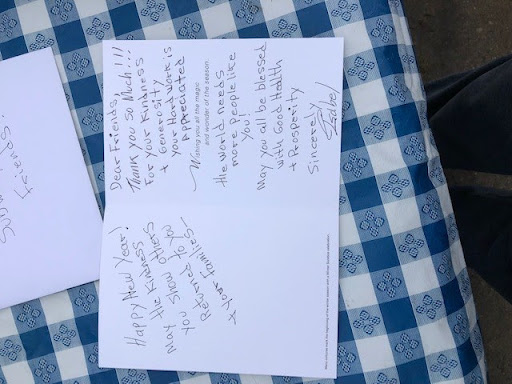 Friends!
Happy New Year!
may the Kindness
you show others
Returns to you
+ your Families
Dear Friends,
Thank you so Much!!!
For your Kindness
+ Generosity
your Hard work is
Appreciated
Wishing you all the magic
and wonder of the season.
the world needs
more people like
you!
May you all be blessed
with Good Health
+ Prosperity
Sincerely,